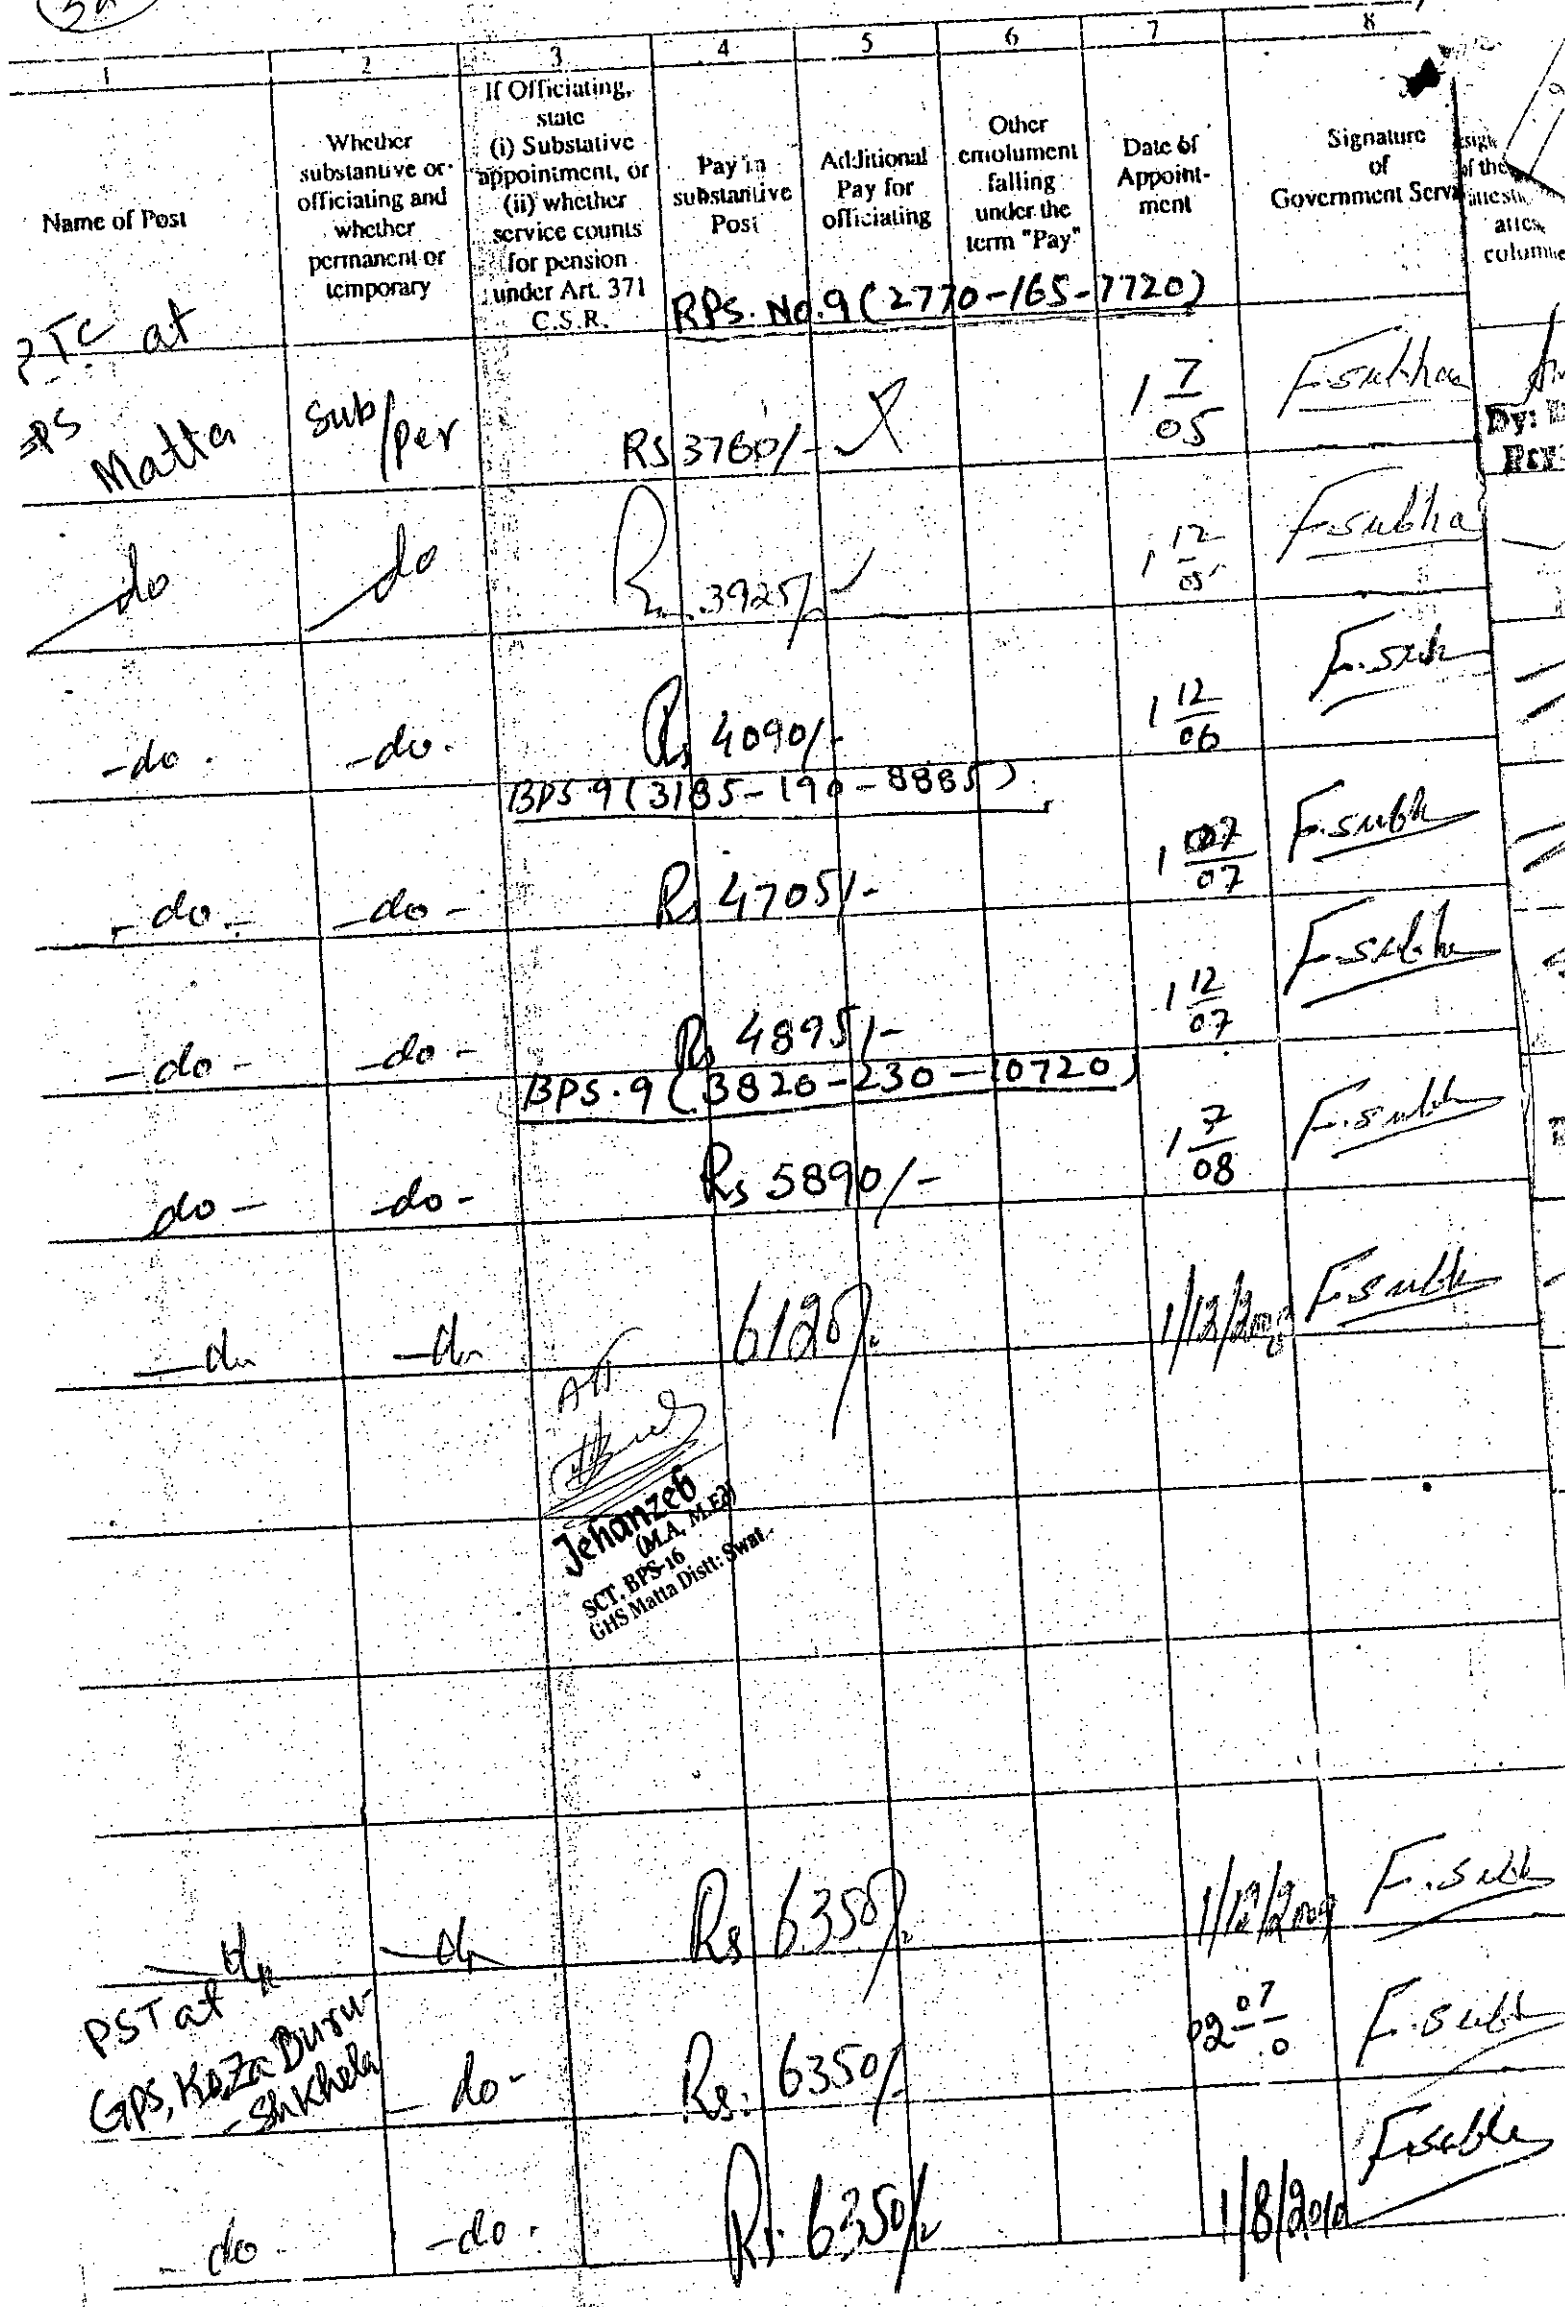 1 2 3 4 5 6 7 8
Name of Post
Whether
substantive or
officiating and
whether
permanent or
temporary
If Officiating,
state
(i) Substative
appointment, or
(ii) whether
service counts
for pension
under Art. 371
C.S.R.
Pay in
substantive
Post
Additional
Pay for
officiating
Other
emolument
falling
under the
term "Pay"
Date of
Appoint-
ment
Signature
of
Government Serva
of the
columne
RPS. No.9 (2770-165-7720)
PTC at
Matta Sub/Per RS 3760/- 1 7/05 F.subha
Dy:
do do Rs. 3925/- 1 12/05 F.subha
-do- -do- Rs 4090/- 1 12/06 F.sub
BPS.9 (3185-190-8885)
-do- -do- Rs 4705/- 1 07/07 F.subh
-do- -do- Rs 4895/- 1 12/07 F.subh
BPS.9 (3820-230-10720)
do- -do- Rs 5890/- 1 7/08 F.subh
-do -do 6120/- 1/12/2008 F.subh
Att
Jehanzeb
(M.A, M.Ed)
SCT. BPS-16
GHS Matta Distt: Swat.
-do -do Rs 6350/- 1/12/2009 F.subh
PST at
GPS, Koza Duru-
-shkhela - do- Rs. 6350/- F.subh
- do -do- Rs. 6350/- 1/8/2010 F.subh